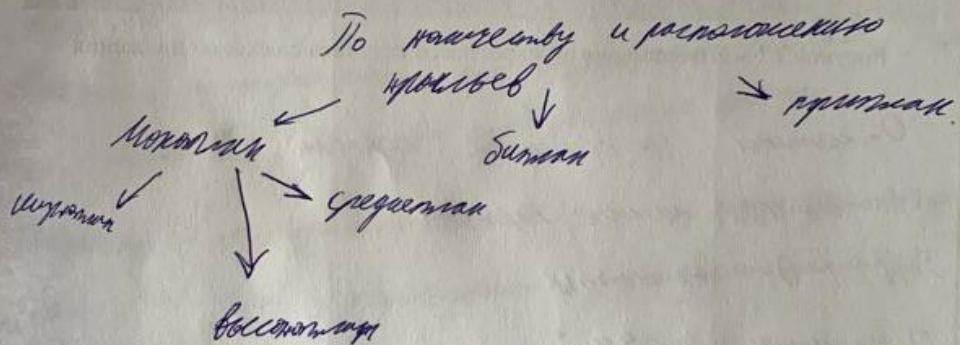 По количеству и расположению
крыльев
Моноплан
биплан
триплан.
низкоплан
среднеплан
высокоплан